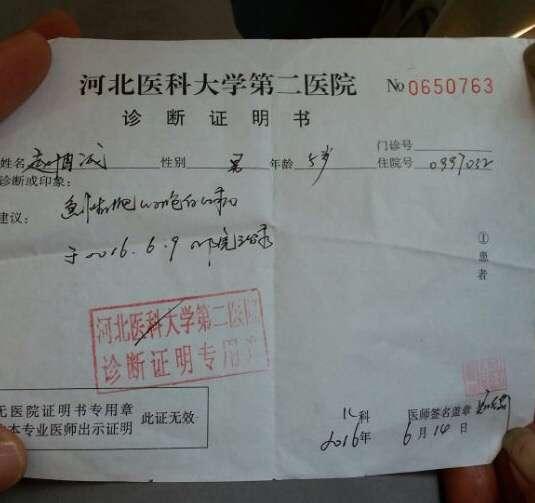 河北医科大学第二医院 No 0650763
诊断证明书
门诊号
姓名 性别 男 年龄 5岁 住院号 0997032
诊断或印象：
急性 白
建议：
于2016.6.9
①患者
河北医科大学第二医院
诊断证明专用
无医院证明书专用章
本专业医师出示证明
此证无效
儿科 医师签名盖章
2016年 6月14日